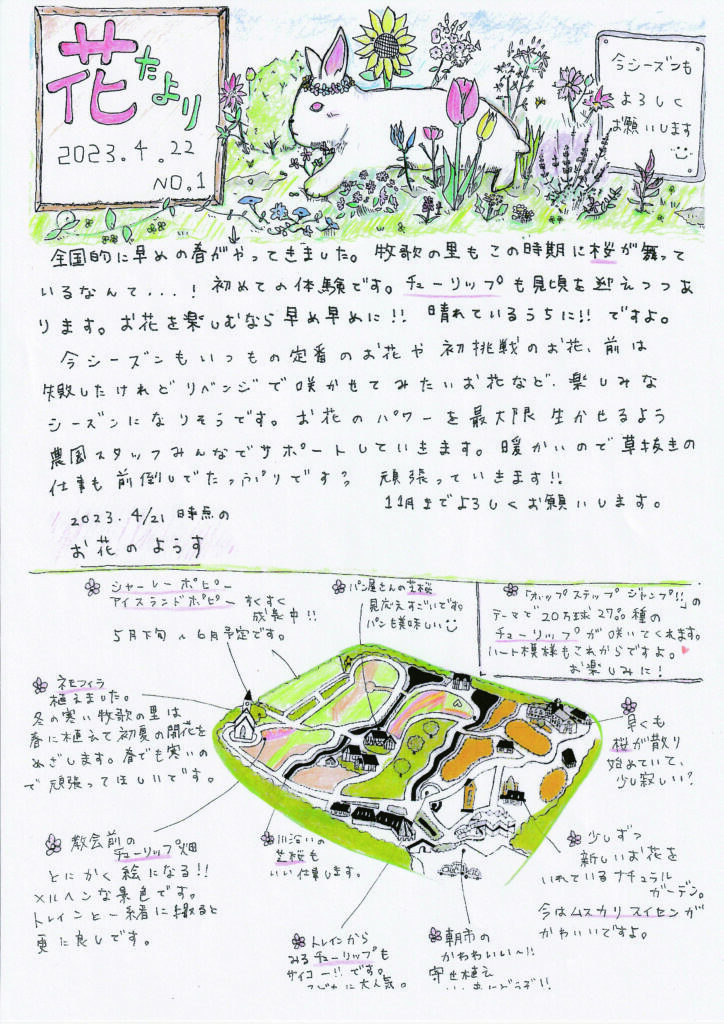 花たより
2023.4.22
NO.1
今シーズンも
よろしく
お願いします
全国的に早めの春がやってきました。牧歌の里もこの時期に桜が舞って
いるなんて...！初めての体験です。チューリップも見頃を迎えつつあ
ります。お花を楽しむなら早め早めに!!晴れているうちに!!ですよ。
今シーズンもいつもの定番のお花や初挑戦のお花、前は
失敗したけれどリベンジで咲かせてみたいお花など、楽しみな
シーズンになりそうです。お花のパワーを最大限生かせるよう
農園スタッフみんなでサポートしていきます。暖かいので草抜きの
仕事も前倒しでたっぷりです？頑張っていきます!!
11月までよろしくお願いします。
2023.4/21時点の
お花のようす
シャーレーポピー
アイスランドポピー すくすく
成長中!!
5月下旬～6月予定です。
パン屋さんの芝桜
見応えすごいです。
パンも美味しい
「ホップステップジャンプ!!」の
テーマで20万球270種の
チューリップが咲いてくれます。
ハート模様もこれからですよ。
お楽しみに！
ネモフィラ
植えました。
冬の寒い牧歌の里は
春に植えて初夏の開花を
めざします。春でも寒いの
で頑張ってほしいです。
早くも
桜が散り
始めていて、
少し寂しい？
教会前の
チューリップ畑
とにかく絵になる!!
メルヘンな景色です。
トレインと一緒に撮ると
更に良しです。
川沿いの
芝桜も
いい仕事します。
少しずつ
新しいお花を
いれているナチュラル
ガーデン。
今はムスカリスイセンが
かわいいですよ。
トレインから
みるチューリップも
サイコー!!です。
大人気。
朝市の
かわいい～!!
寄せ植え